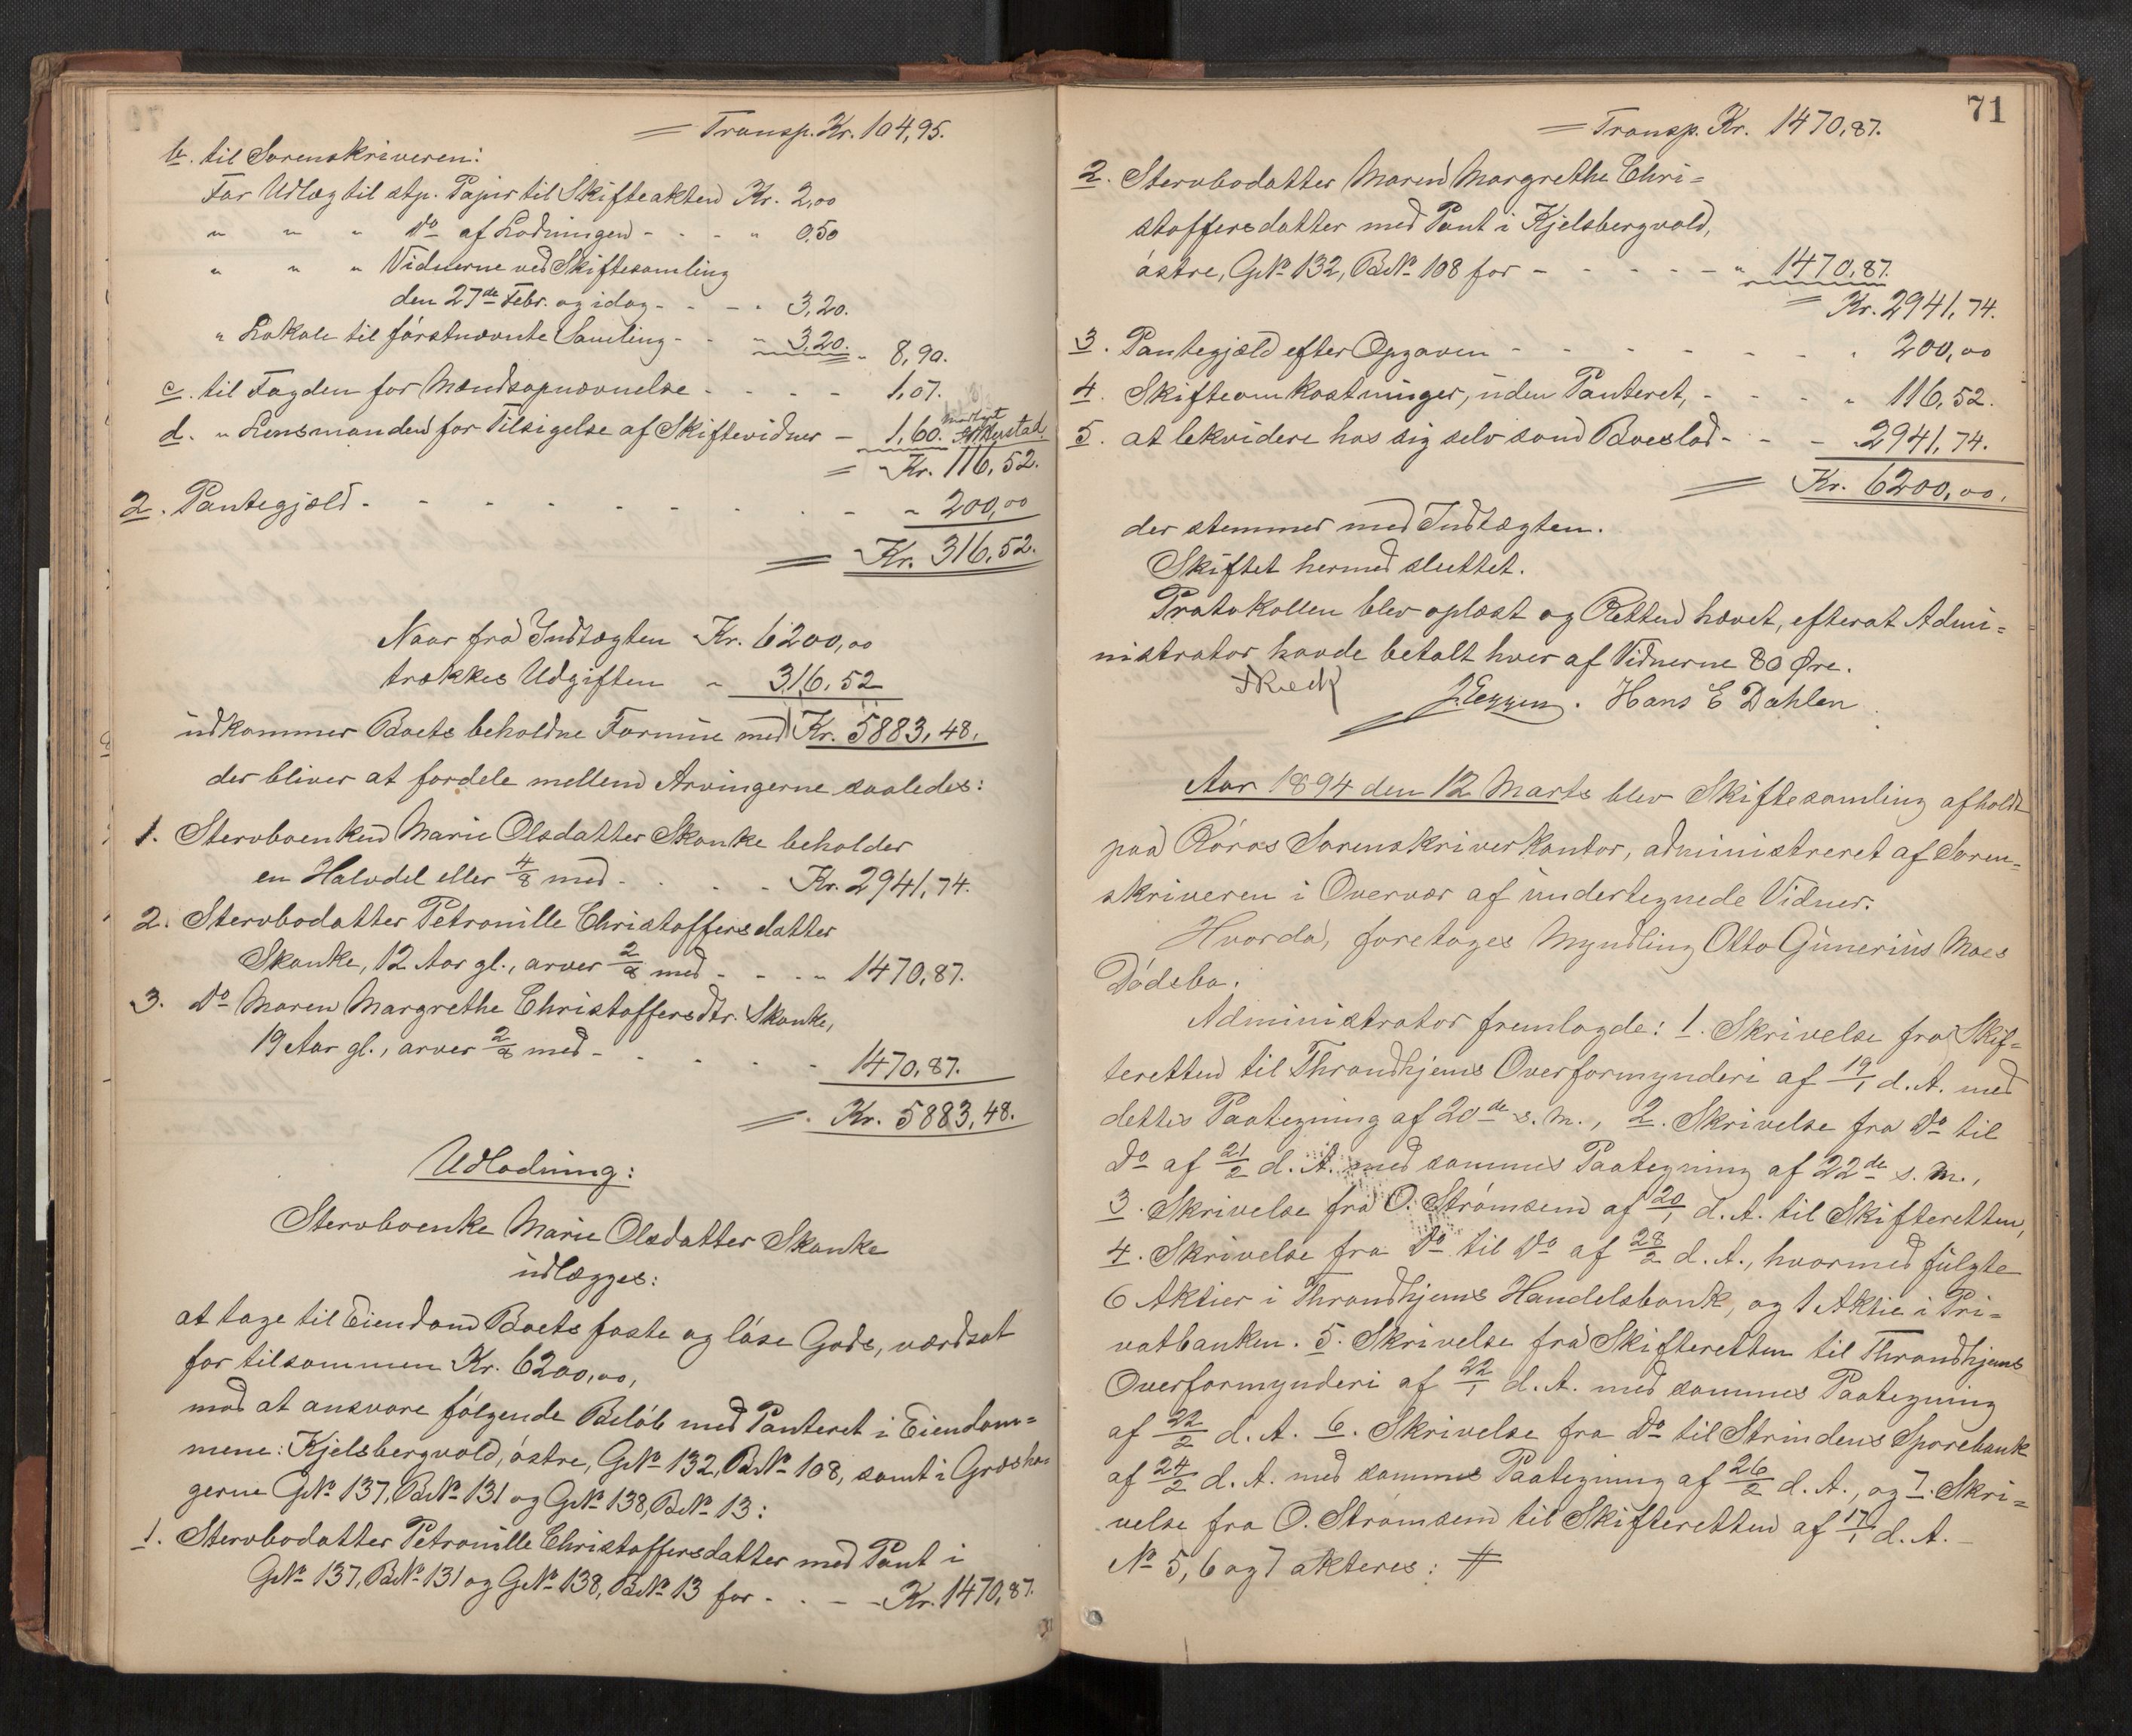 = Transp. Kr. 104,95.
b. til Sorenskriveren:
For Udlæg til stp. Papir til Skifteakten Kr. 2,00
" " " Do af Lodningen - - - " 0,50
" " " Vidnerne ved Skiftesamling
den 27de Febr. og idag - - - " 3,20.
" Lokale til førstnævnte Samling - - " 3,20. " 8,90.
c. til Fogden for Mændsopnævnelse - - - - 1,07.
d. " Lensmanden for Tilsigelse af Skiftevidner - 1,60.
= Kr. 116,52.
2. Pantegjæld - - - - - - - - - " 200,00
= Kr. 316,52.
Naar fra Indtægten Kr. 6200,00
trækkes Udgiften " 316,52
udkommer Boets beholdne Formue med Kr. 5883,48.
der bliver at fordele mellem Arvingerne saaledes:
1. Stervboenken Marie Olsdatter Skanke beholder
en Halvdel eller 4/8 med - - - - Kr. 2941,74.
2. Stervbodatter Petronille Christoffersdatter
Skanke, 12 Aar gl., arver 2/8 med - - - " 1470,87.
3. Do Maren Margrethe Christoffersdtr. Skanke,
19 Aar gl., arver 2/8 med - - - - - 1470,87.
= Kr. 5883,48.
Udlodning:
Stervboenke Marie Olsdatter Skanke
udlægges:
at tage til Eiendom Boets faste og løse Gods, værdsat
for tilsammen Kr. 6200,00,
mod at ansvare følgende Beløb med Panteret i Eiendom=
mene: Kjelsbergvold, østre, GNo 132, BNo 108, samt i Græsha-
gerne GNo 137, BNo 131 og GNo 138, BNo 13:
1. Stervbodatter Petronille Christoffersdatter med Pant i
GNo 137, BNo 131 og GNo 138, BNo 13 for - - - Kr. 1470,87.
71
= Transp. Kr. 1470,87.
2. Stervbodatter Maren Margrethe Chri=
stoffersdatter med Pant i Kjelsbergvold,
østre, GNo 132, BNo 108 for - - - - - " 1470,87.
= Kr. 2941,74.
3. Pantegjæld efter Opgaven - - - - - - " 200,00
4. Skifteomkostninger, uden Panteret, - - - - " 116,52.
5. at lekvidere hos sig selv som Boeslod - - - 2941,74.
= Kr. 6200,00.
der stemmer med Indtægten.
Skiftet hermed sluttet.
Protokollen blev oplæst og Retten hævet, efterat Admi=
nistrator havde betalt hver af Vidnerne 80 Øre.
J. Eggen. Hans E Dahlen
Aar 1894 den 12 Marts blev Skiftesamling afholdt
paa Røros Sorenskriverkontor, administreret af Soren=
skriveren i Overvær af undertegnede Vidner.
Hvorda, foretoges Myndling Otto Gunerius Moes
Dødsbo.
Administrator fremlagde: 1. Skrivelse fra Skif=
teretten til Throndhjems Overformynderi af 19/1 d. A. med
dettes Paategning af 20de s. M., 2. Skrivelse fra Do til
Do af 21/2 d. A. med sammes Paategning af 22de s. M.,
3. Skrivelse fra O. Strømsem af 20/1 d. A. til Skifteretten,
4. Skrivelse fra Do til Do af 28/2 d. A., hvormed fulgte
6 Aktier i Throndhjems Handelsbank, og 1 Aktie i Pri=
vatbanken. 5. Skrivelse fra Skifteretten til Throndhjems
Overformynderi af 22/1 d. A. med sammes Paategning
af 22/2 d. A. 6. Skrivelse fra Do til Strindens Sparebank
af 24/2 d. A. med sammes Paategning af 26/2 d. A., og 7. Skri=
velse fra O. Strømsem til Skifteretten af 17/1 d. A. -
No 5, 6 og 7 akteres: #